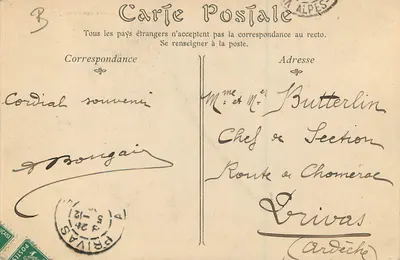 B
Carte Postale
ALPES-
Tous les pays étrangers n'acceptent pas la correspondance au recto.
Se renseigner à la poste.
Correspondance
Cordial souvenir
PRIVAS
Adresse
Mme et Mr Butterlin
Chef de Section
Route de Chomérac
Privas
(Ardèche)